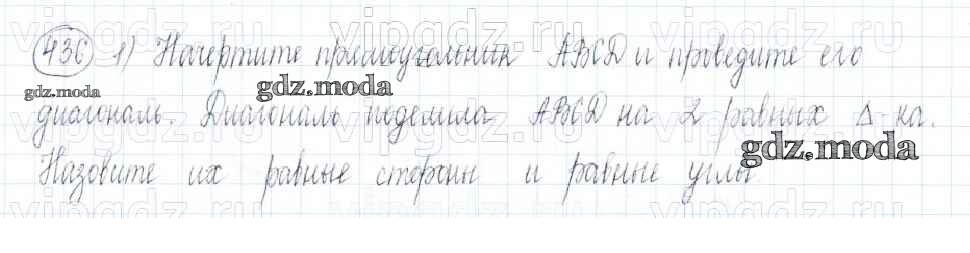 vipgdz.ru vipgdz.ru vipgdz.ru vipgdz.ru
436 1) Начертите прямоугольник ABCD и проведите его
gdz.moda gdz.moda
диагональ. Диагональ поделила ABCD на 2 равных Δ-ка.
gdz.moda
Назовите их равные стороны и равные углы.
vipgdz.ru vipgdz.ru vipgdz.ru vipgdz.ru